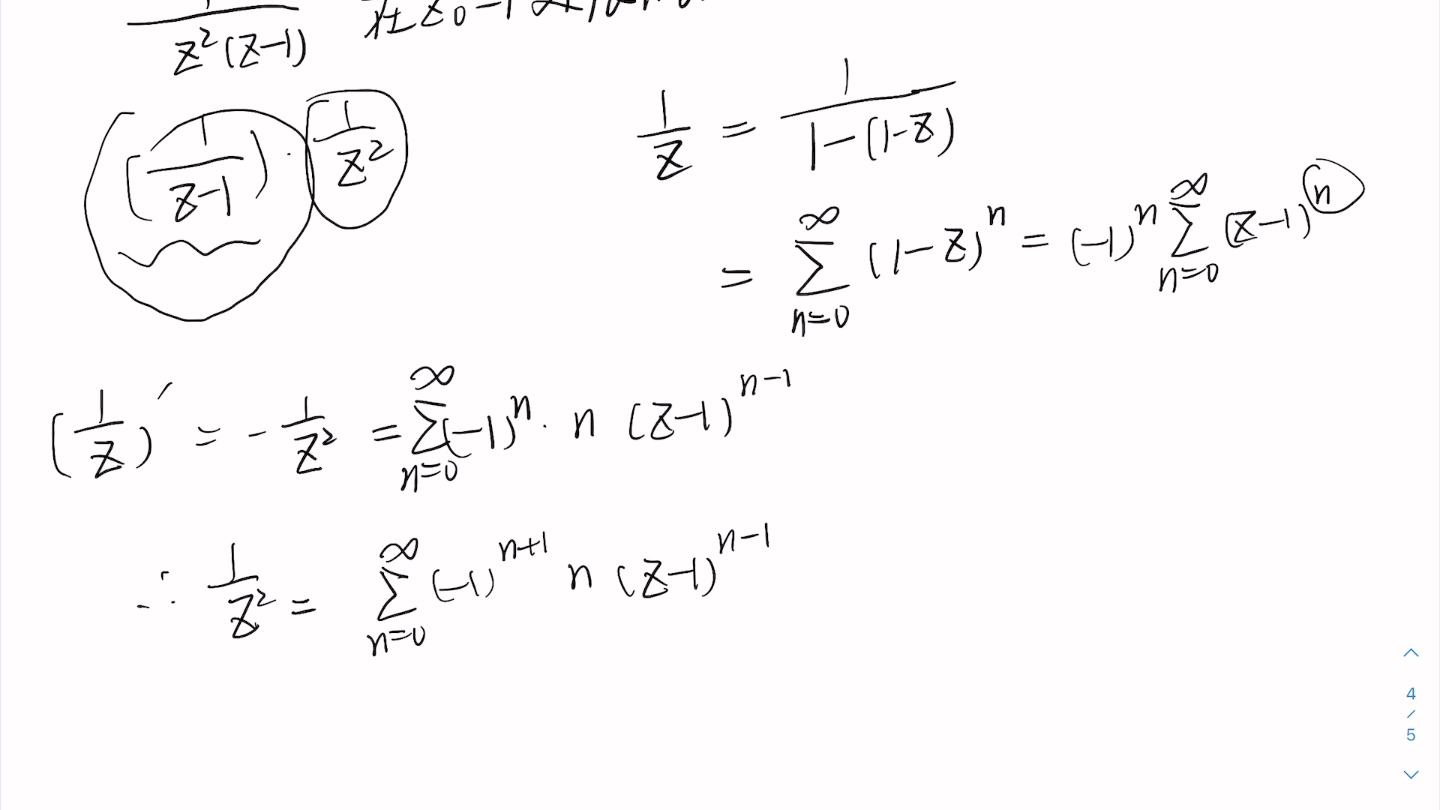 1/(z²(z-1)) 在 z₀-1
(1/(z-1)) · 1/z²
1/z = 1/(1-(1-z))
= ∑_{n=0}^{∞} (1-z)^n = (-1)^n ∑_{n=0}^{∞} (z-1)^n
(1/z)' = - 1/z² = ∑_{n=0}^{∞} (-1)^n · n (z-1)^{n-1}
∴ 1/z² = ∑_{n=0}^{∞} (-1)^{n+1} n (z-1)^{n-1}
4
/
5